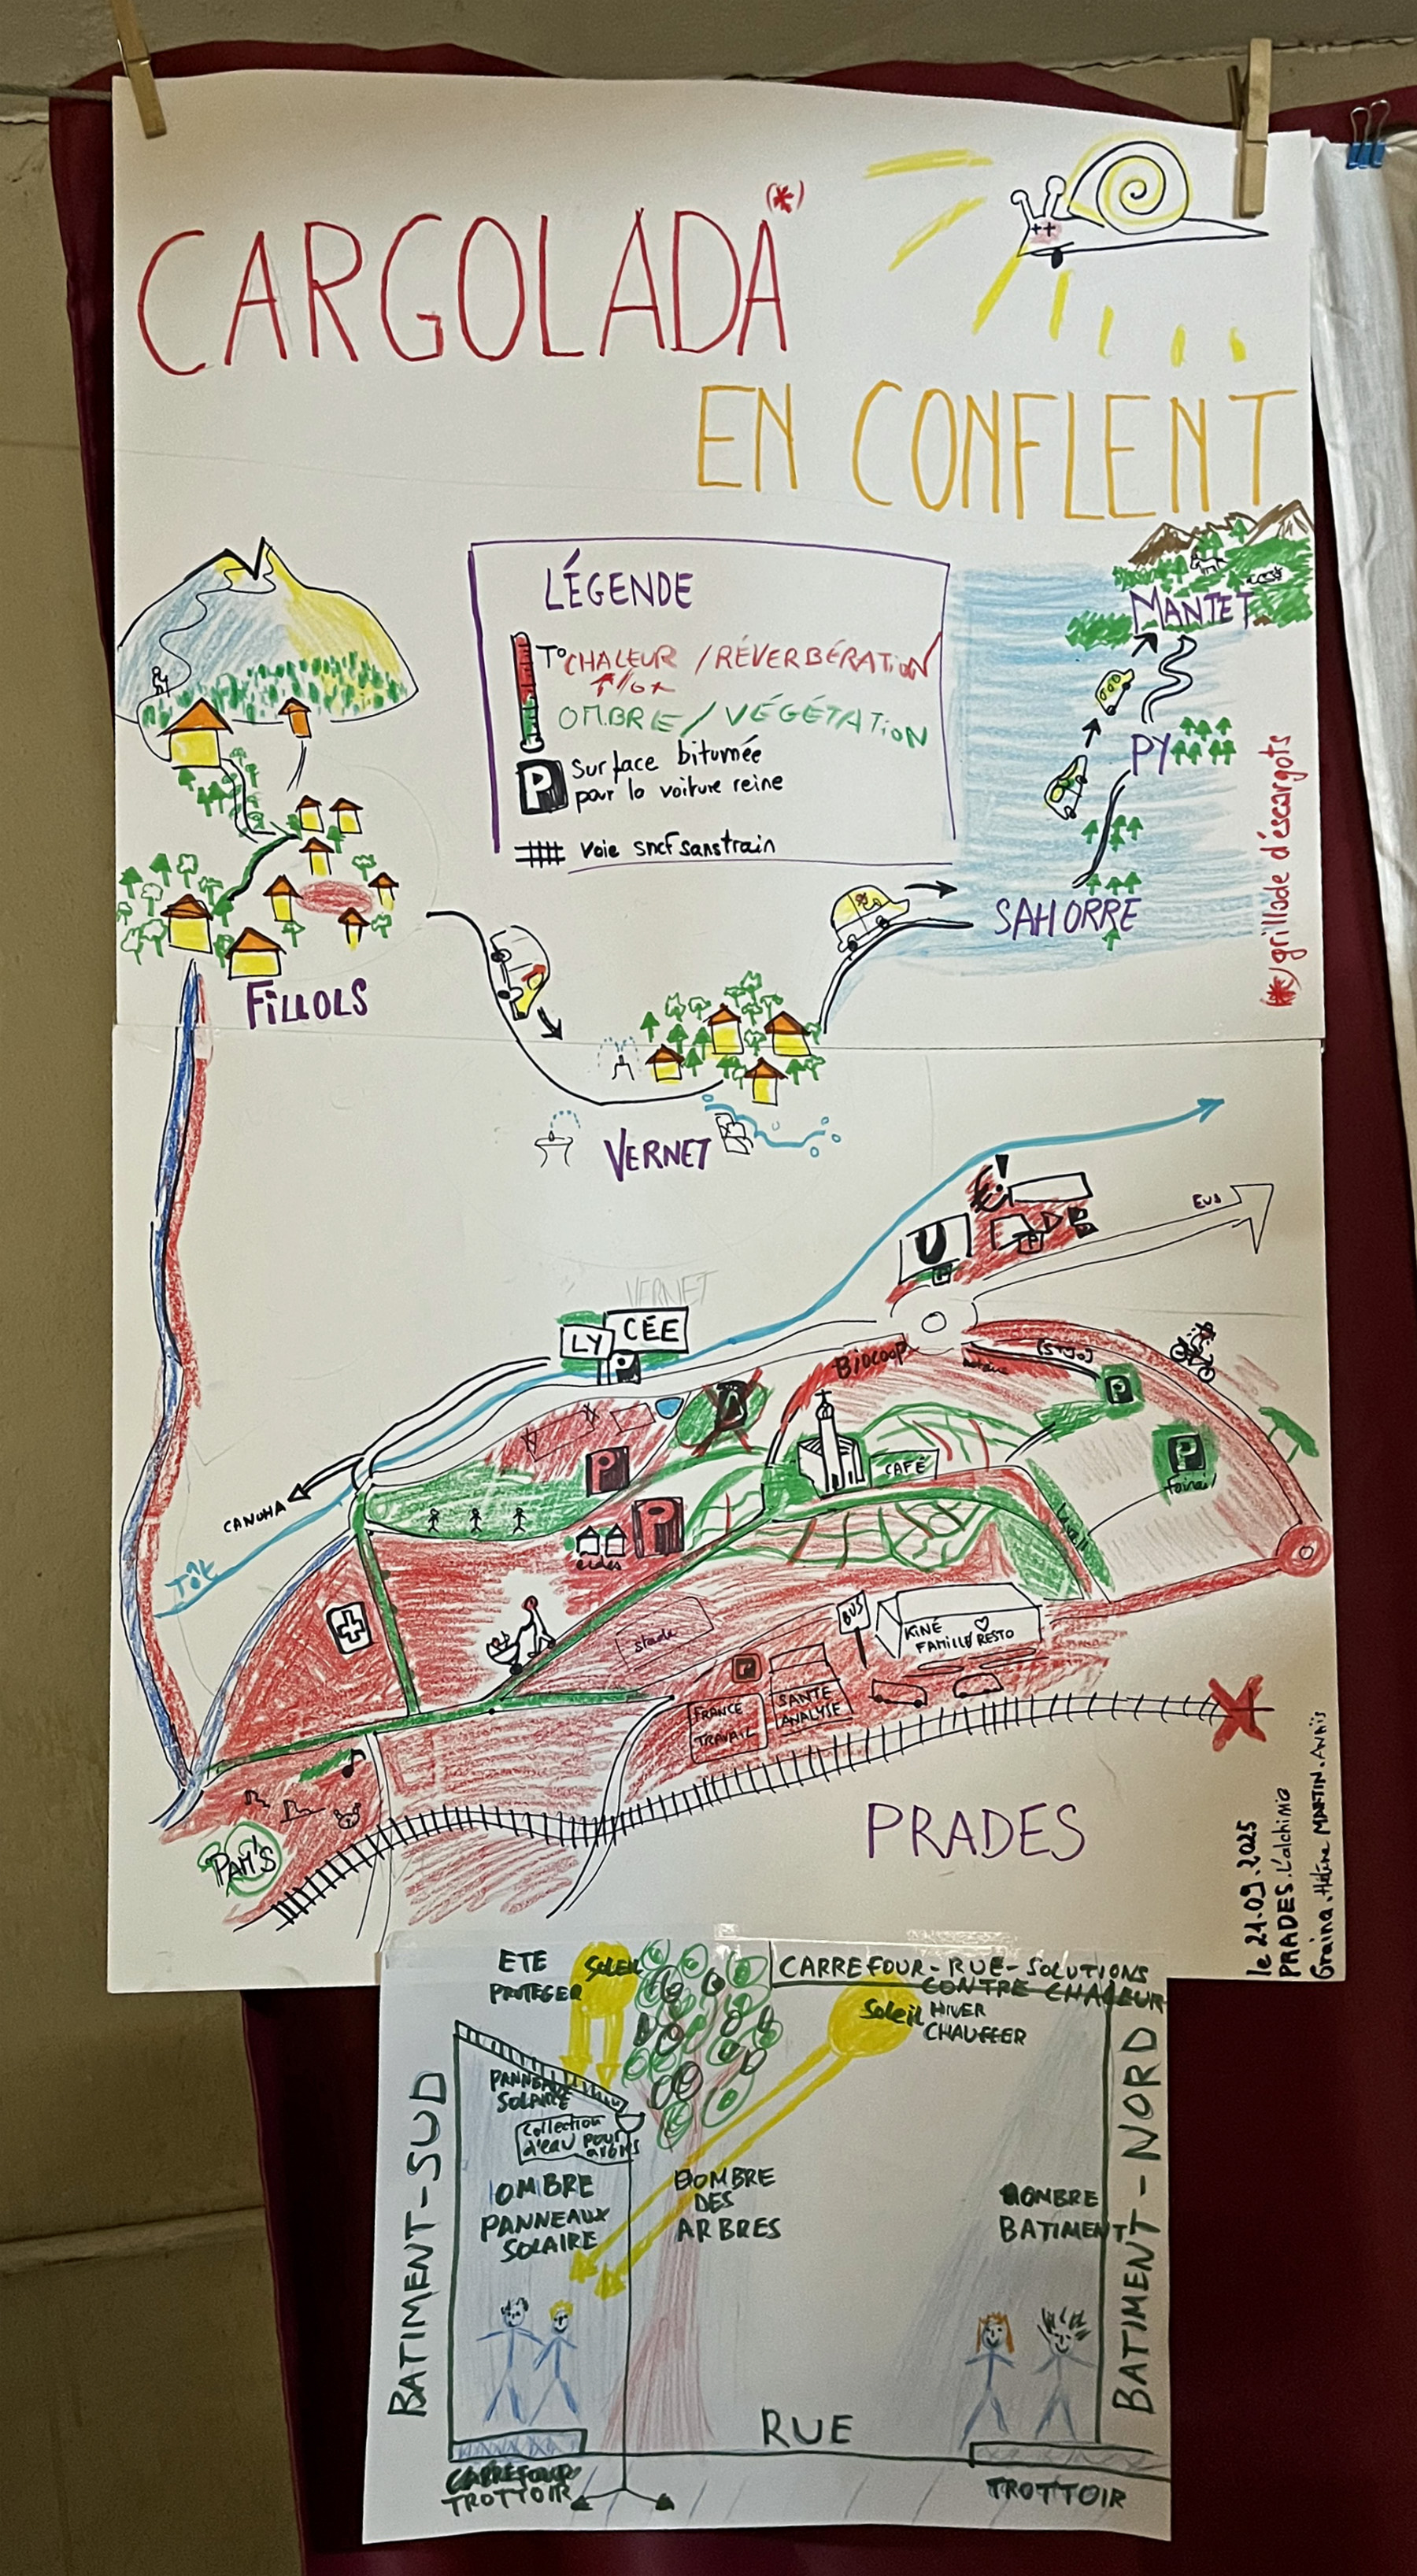 CARGOLADA (*)
EN CONFLENT
LÉGENDE
T° CHALEUR / RÉVERBÉRATION
OMBRE / VÉGÉTATION
P Surface bitumée
pour la voiture reine
voie sncf sans train
MANTET
PY
SAHORRE
(*) grillade d'éscargots
FILLOLS
VERNET
EUS
U
VERNET
LY CÉE
P
Biocoop
notaire
P
P
CAFÉ
P
foirail
CANOHA
Têt
P
stade
BUS
KINÉ
FAMILLE RESTO
P
FRANCE
TRAVAIL
SANTE
ANALYSE
PAM'S
PRADES
le 21.09.2025
PRADES. L'alchimo
Graina. Hélène MARTIN. Anaïs
ETE
PROTEGER
SOLEIL
CARREFOUR-RUE-SOLUTIONS
CONTRE CHALEUR
Soleil HIVER
CHAUFFER
PANNEAUX
SOLAIRE
Collection
d'eau pour
arbres
BATIMENT-SUD
OMBRE
PANNEAUX
SOLAIRE
OMBRE
DES
ARBRES
OMBRE
BATIMENT
BATIMENT-NORD
RUE
CARREFOUR
TROTTOIR
TROTTOIR